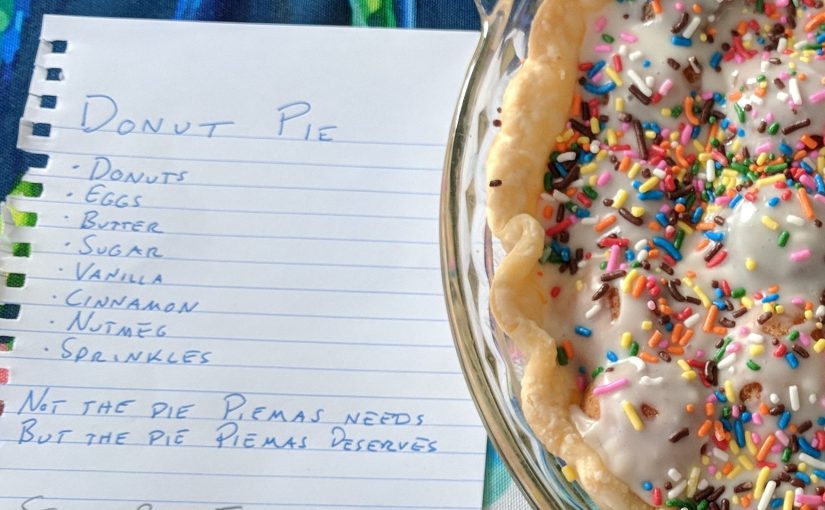 DONUT PIE
· DONUTS
· EGGS
· BUTTER
· SUGAR
· VANILLA
· CINNAMON
· NUTMEG
· SPRINKLES
NOT THE PIE PIEMAS NEEDS
BUT THE PIE PIEMAS DESERVES